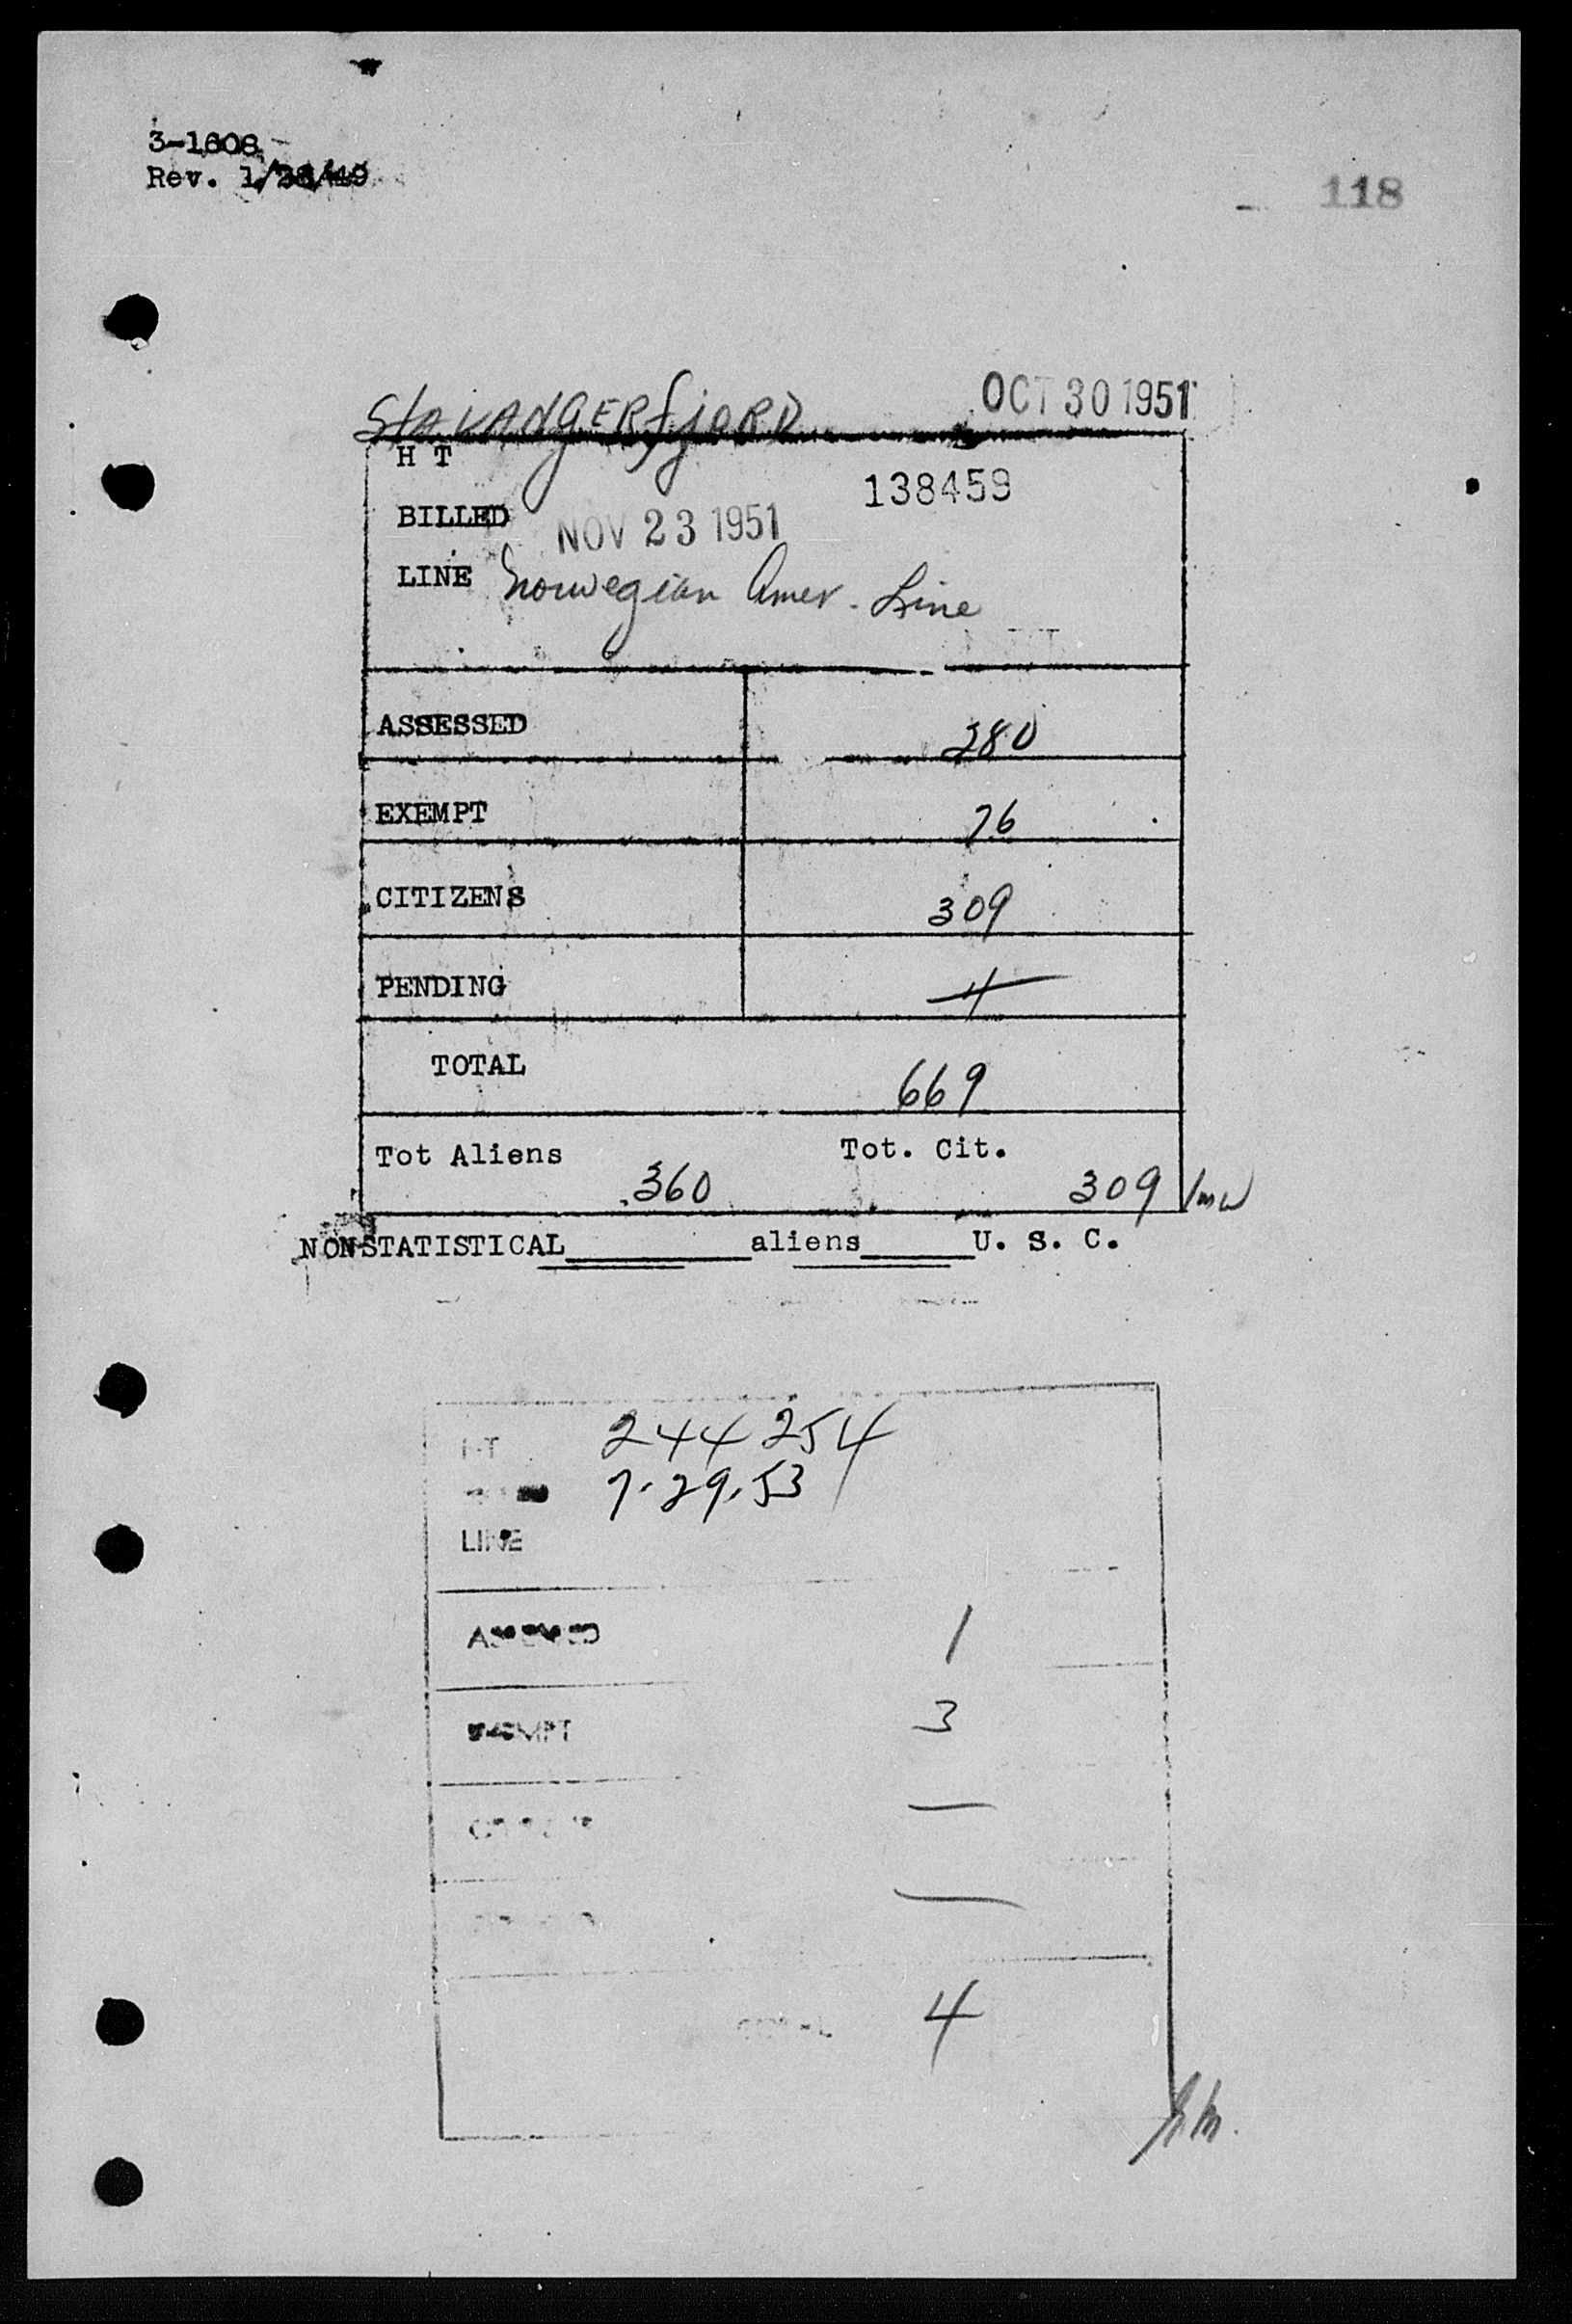 3-1608
Rev. 1/28/49
118
StAVANGERfjORD OCT 30 1951
H T
138459
BILLED NOV 23 1951
LINE Norwegian Amer. Line
ASSESSED 280
EXEMPT 76
CITIZENS 309
PENDING 4
TOTAL 669
Tot Aliens 360 Tot. Cit. 309 /mw
NONSTATISTICAL________aliens_____U. S. C.
244254
7.29.53
LINE
ASSESSED 1
EXEMPT 3
—
—
4